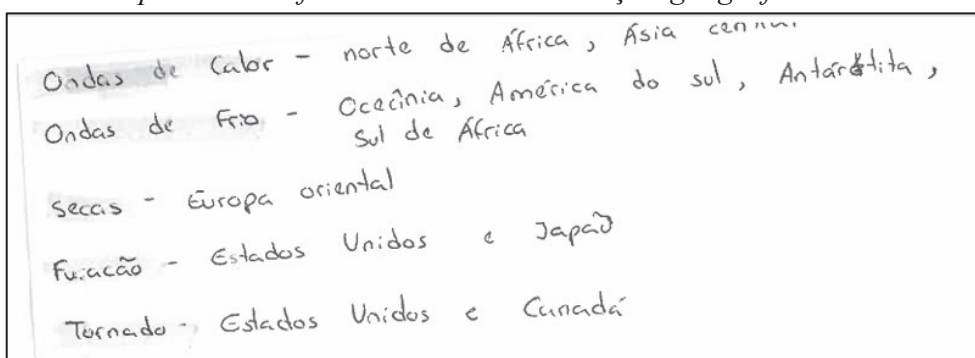 Ondas de Calor - norte de África, Ásia
Ondas de Frio - Ocecinia, América do sul, Antárctita,
Sul de África
Secas - Europa oriental
Furacão - Estados Unidos e Japão
Tornado - Estados Unidos e Canadá